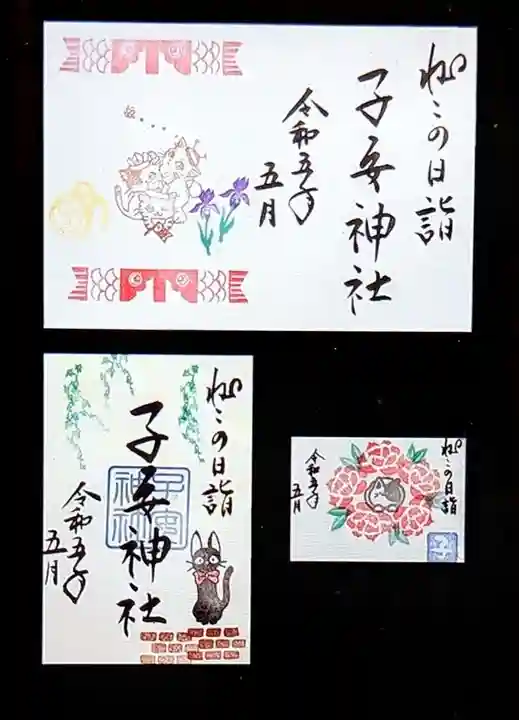 ねこの日詣
子安神社
令和五年
五月
ねこの日詣
子安神社
令和五年
五月
ねこの日詣
令和五年
五月